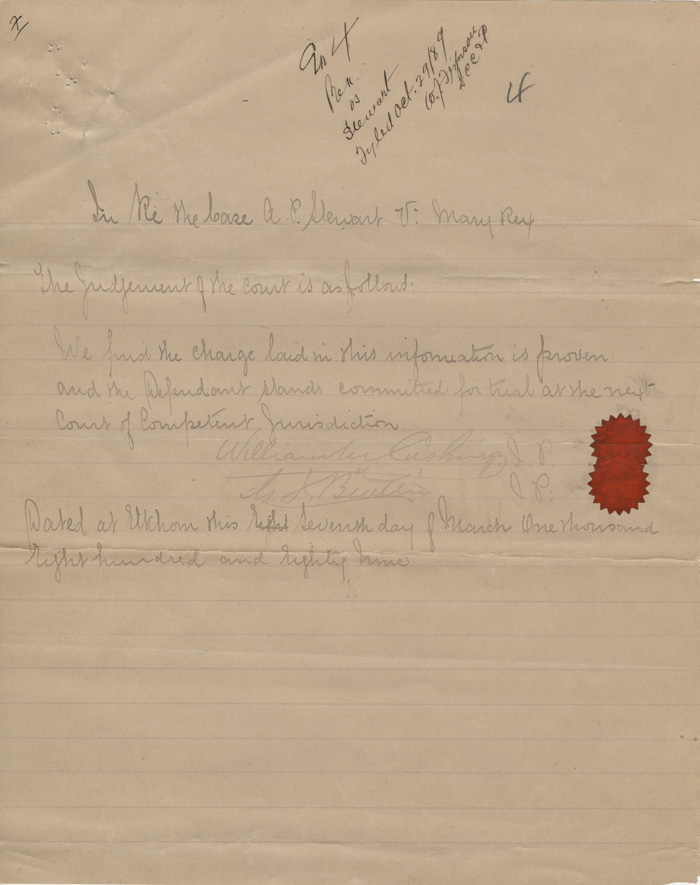 X
4
Rex
vs
Stewart
Fyled Oct: 29/89
4
In Re the Case A. P. Stewart V: Mary Rex
The Judgement of the court is as follows:
We find the charge laid in this information is proven
and the Defendant stands committed for trial at the next
Court of Competent Jurisdiction
William Cushing J P.
J P.
Dated at Elkhorn this Eight Seventh day of March One thousand
Eight hundred and Eighty Nine